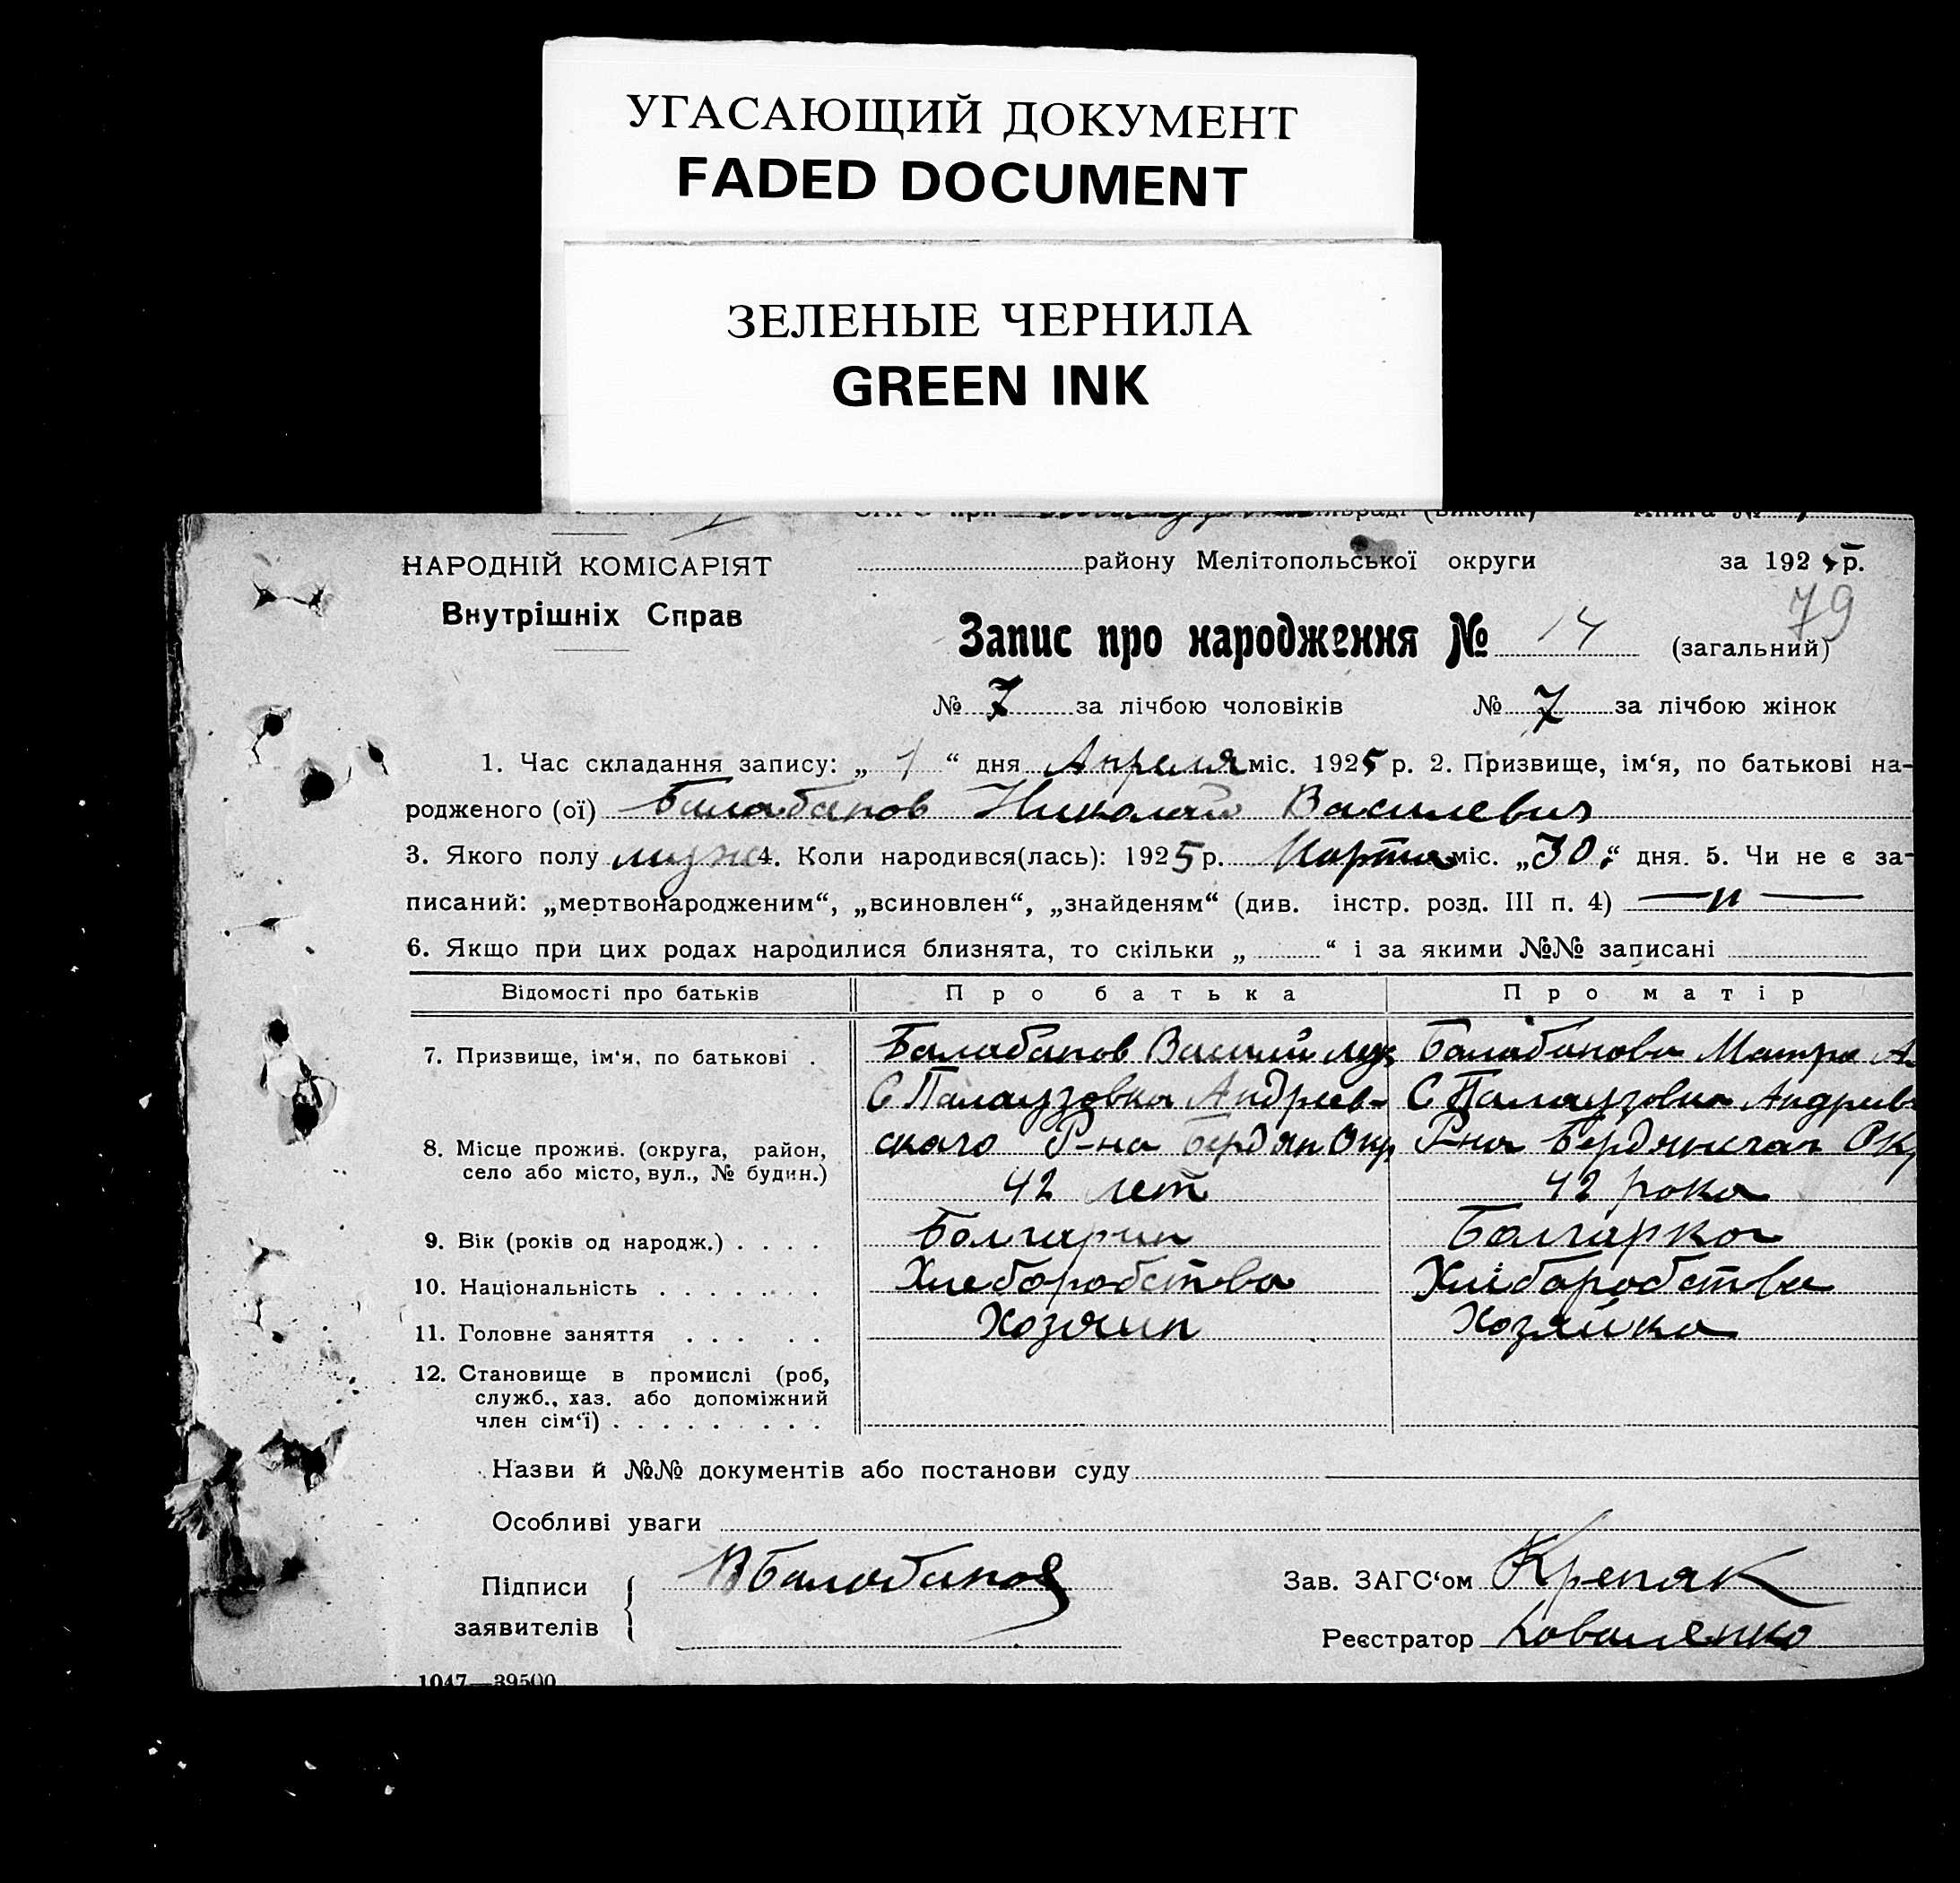 УГАСАЮЩИЙ ДОКУМЕНТ
FADED DOCUMENT
ЗЕЛЕНЫЕ ЧЕРНИЛА
GREEN INK
НАРОДНІЙ КОМІСАРІЯТ
Внутрішніх Справ
району Мелітопольської округи за 1925 р.
79
Запис про народження № 14 (загальний)
№ 7 за лічбою чоловіків № 7 за лічбою жінок
1. Час складання запису: „ 1 “ дня Апреля міс. 1925 р. 2. Призвище, ім‘я, по батькові на-
родженого (ої) Балабанов Николай Василевич
3. Якого полу муж 4. Коли народився(лась): 1925 р. Марта міс. „30“ дня. 5. Чи не є за-
писаний: „мертвонародженим“, „всиновлен“, „знайденям“ (див. інстр. розд. III п. 4) — н —
6. Якщо при цих родах народилися близнята, то скільки „ “ і за якими №№ записані
Відомості про батьків Про батька Про матір
7. Призвище, ім‘я, по батькові . Балабанов Василий Лук Балабанова Матро
С Палаузовка Андреев- С Палаузовка Андреев
8. Місце прожив. (округа, район, село або місто, вул., № будин.) скаго Р-на Бердян Окр Р-на Бердянскаг Ок
42 лет 42 рока
9. Вік (років од народж.) . . . . Болгарин Болгарка
10. Національність . . . . . . . Хлеборобства Хліборобства
11. Головне заняття . . . . . Хозяин Хозяйка
12. Становище в промислі (роб,
служб., хаз. або допоміжний
член сім‘ї) . . . . . . . . .
Назви й №№ документів або постанови суду
Особливі уваги
Підписи заявителів В Балабанов
Зав. ЗАГС‘ом Крепяк
Реєстратор Коваленко
1047—39500